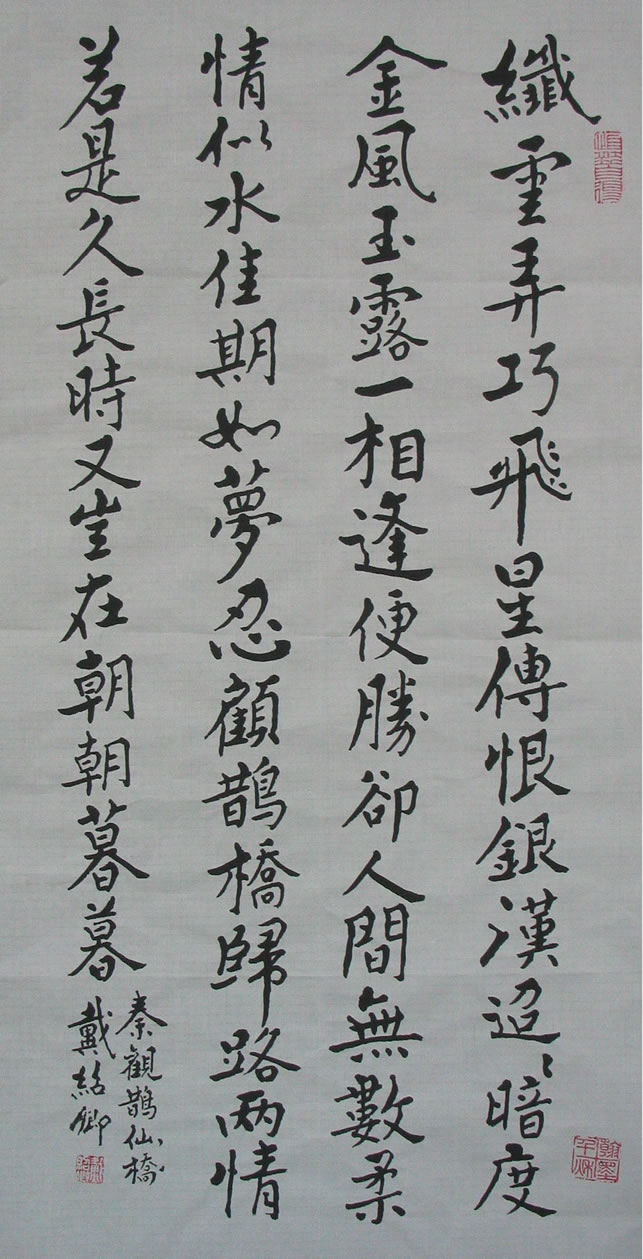 纖雲弄巧飛星傳恨銀漢迢〻暗度
金風玉露一相逢便勝卻人間無數柔
情似水佳期如夢忍顧鵲橋歸路两情
若是久長時又豈在朝朝暮暮
秦觀鵲仙橋
戴紹卿